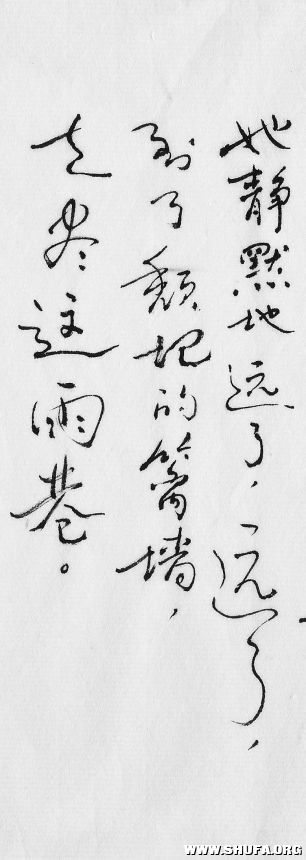 她静默地远了，远了，
到了颓圮的篱墙，
走尽这雨巷。
WWW.SHUFA.ORG